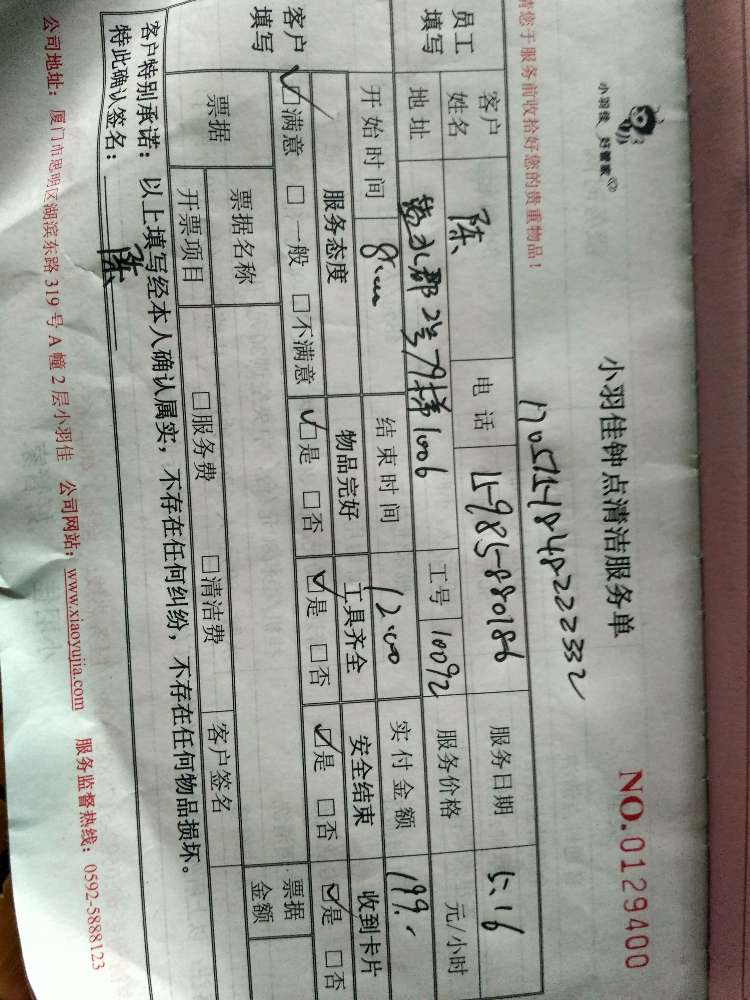 小羽佳 好管家
小羽佳钟点清洁服务单
NO.0129400
请您于服务前收拾好您的贵重物品！
员工填写
客户姓名 陈 电话 15985880186 服务日期 5.16
地址 2号79梯1006 工号 10092 服务价格 元/小时
开始时间 8:00 结束时间 12:00 实付金额 199.-
客户填写
服务态度 物品完好 工具齐全 安全结束 收到卡片
☑满意 □一般 □不满意 ☑是 □否 ☑是 □否 ☑是 □否 ☑是 □否
票据 票据名称 票据金额
开票项目 □服务费 □清洁费 客户签名
客户特别承诺：以上填写经本人确认属实，不存在任何纠纷，不存在任何物品损坏。
特此确认签名：陈
公司地址：厦门市思明区湖滨东路319号A幢2层小羽佳 公司网站：www.xiaoyujia.com 服务监督热线：0592-5888123